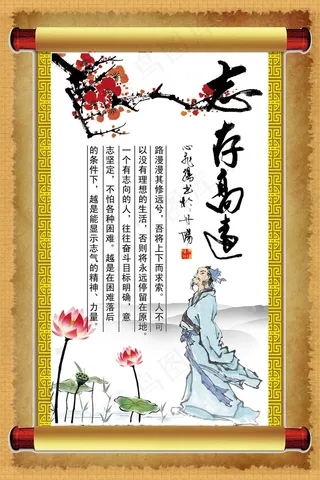 志存高远
路漫漫其修远兮，吾将上下而求索。人不可
以没有理想的生活，否则将永远停留在原地。
一个有志向的人，往往奋斗目标明确，意
志坚定，不怕各种困难。越是在困难落后
的条件下，越是能显示志气的精神、力量。